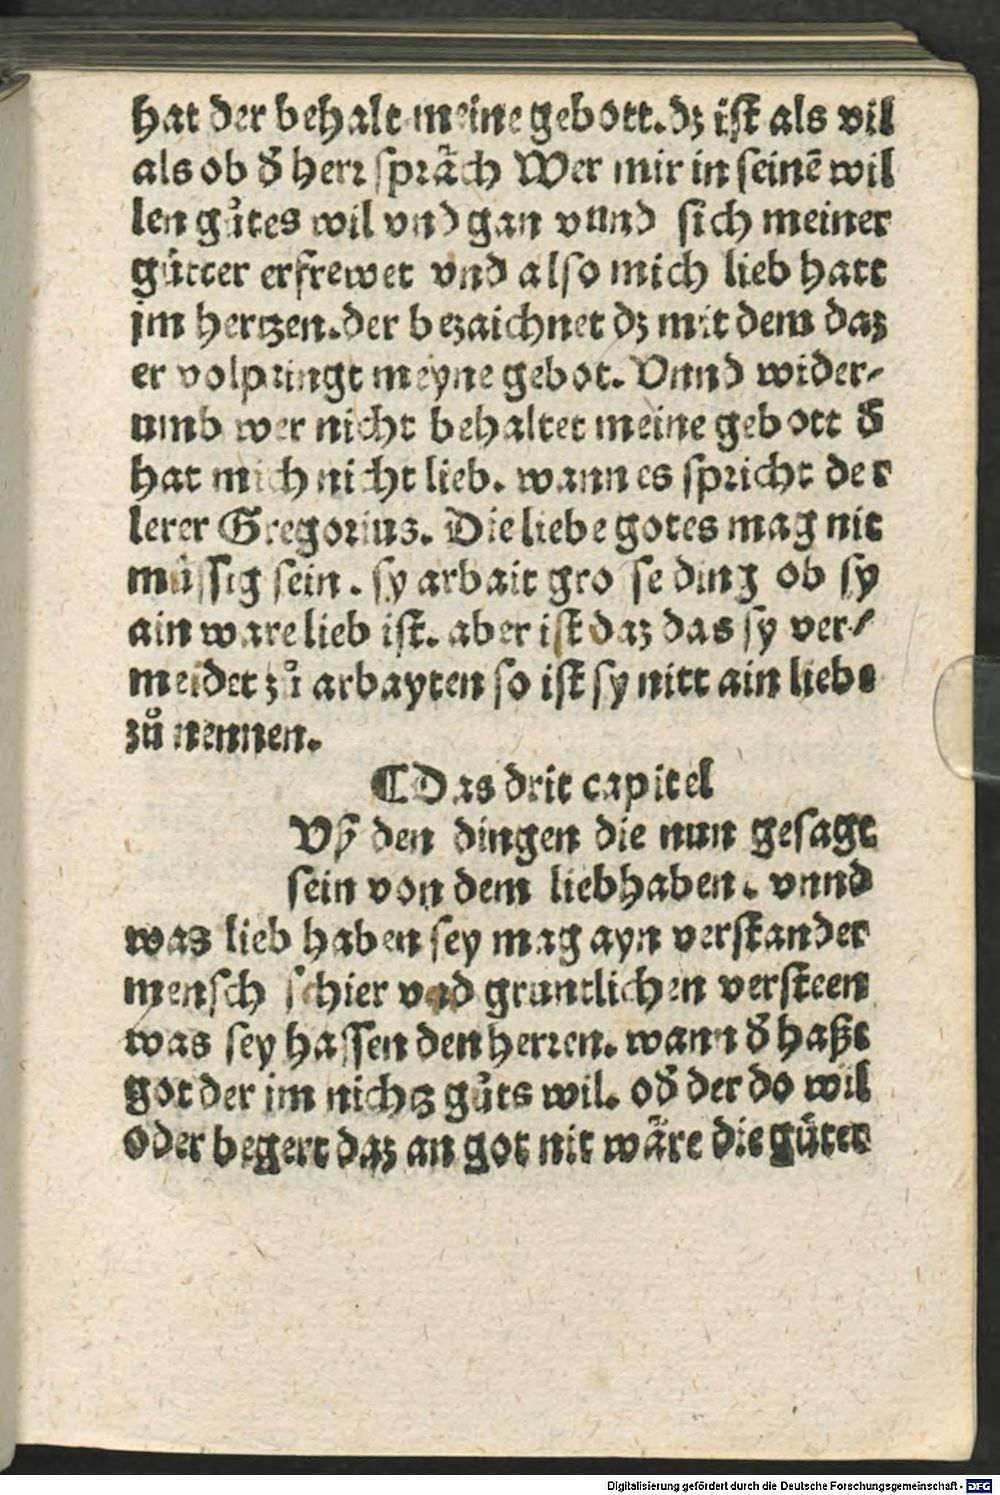 hat der behalt meine gebott. dz ist als vil
als ob d̕ herr sprä̈ch Wer mir in seinē wil
len gůtes wil vnd gan vnnd sich meiner
gütter erfrewet vnd also mich lieb hatt
jm hertzen. der bezaichnet dz mit dem daz
er volpringt meyne gebot. Vnnd wider⸗
umb wer nicht behaltet meine gebott d̕
hat mich nicht lieb. wann es spricht der
lerer Gregorius. Die liebe gotes mag nit
müssig sein. sy arbait grosse ding ob sy
ain ware lieb ist. aber ist daz das sy ver⸗
meidet zů arbayten so ist sy nitt ain liebe
zů nennen.
¶ Das drit capitel
Vß den dingen die nun gesagt
sein von dem liebhaben. vnnd
was lieb haben sey mag ayn verstander
mensch schier vnd gruntlichen versteen
was sey hassen den herren. wann d̕ haßt
got der im nichtz gůts wil. od̕ der do wil
oder begert daz an got nit wäre die güter
Digitalisierung gefördert durch die Deutsche Forschungsgemeinschaft - DFG